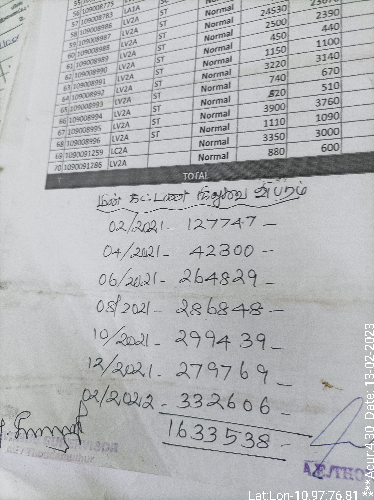 55 109008775 ST
56 109008783 LA1A ST Normal 24530
57 109008986 LV2A ST Normal 2500 2390
59 109008987 LV2A ST Normal 450 440
60 109008988 LV2A ST Normal 1150 1100
61 109008989 LV2A ST Normal 3220 3140
62 109008990 LV2A ST Normal 740 670
63 109008991 LV2A ST Normal 520 510
64 109008992 LV2A ST Normal 3900 3760
65 109008993 LV2A ST Normal 1110 1090
66 109008994 LV2A ST Normal 3350 3000
67 109008995 LV2A ST Normal 880 600
68 109008996 LV2A
69 1090091259 LC2A
70 1090091286 LV2A
TOTAL
மின் கட்டண நிலுவை விபரம்
02/2021 - 127747 -
04/2021 - 42300 -
06/2021 - 264829 -
08/2021 - 286848 -
10/2021 - 299439 -
12/2021 - 279769 -
02/2022 - 332606 -
1633538 -
A.E/THO
***Acur:4.30 Date:13-02-2023
Lat Lon-10.97:76.81